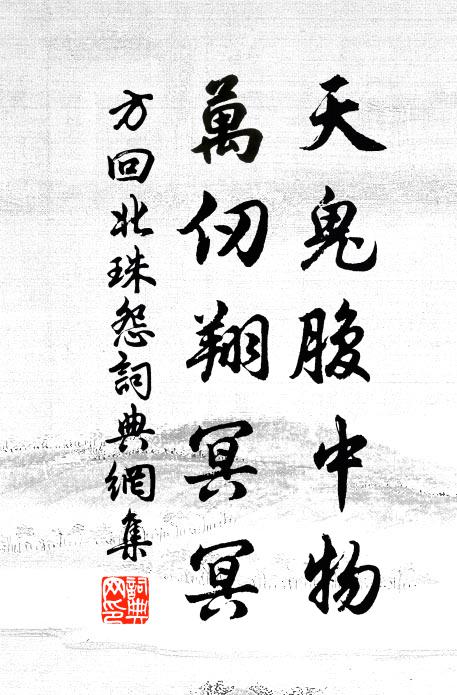 天鬼腹中物
萬仞翔冥冥
方回北珠怨詞典網集
詞典网印